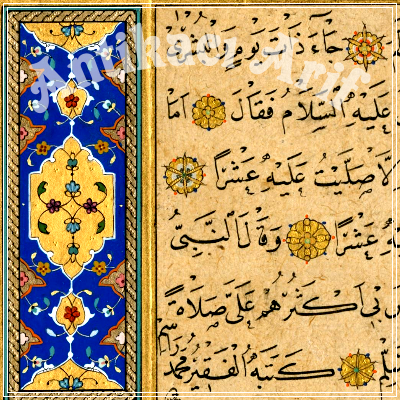 Antikacı Arif
جَاءَ ذَاتَ يَوْمٍ وَالْبُشْرَى
عَلَيْهِ السَّلَامُ فَقَالَ اَمَا
صَلَّيْتُ عَلَيْهِ عَشْرًا
عَشْرًا وَقَالَ النَّبِيُّ
بِي اَكْثَرُهُمْ عَلَيَّ صَلَاةً
كَتَبَهُ الْفَقِيرُ مُحَمَّد